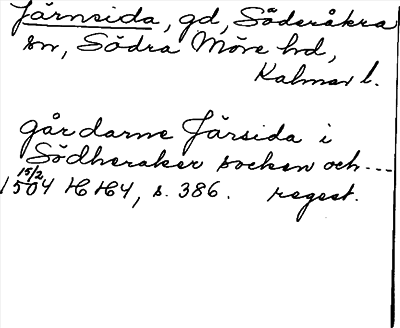 Järnsida, gd, Söderåkra
sn, Södra Möre hd,
Kalmar l.
gårdarne Järsida i
Södheraker socken och ---
15/2
1504 HH4, s. 386. regest.